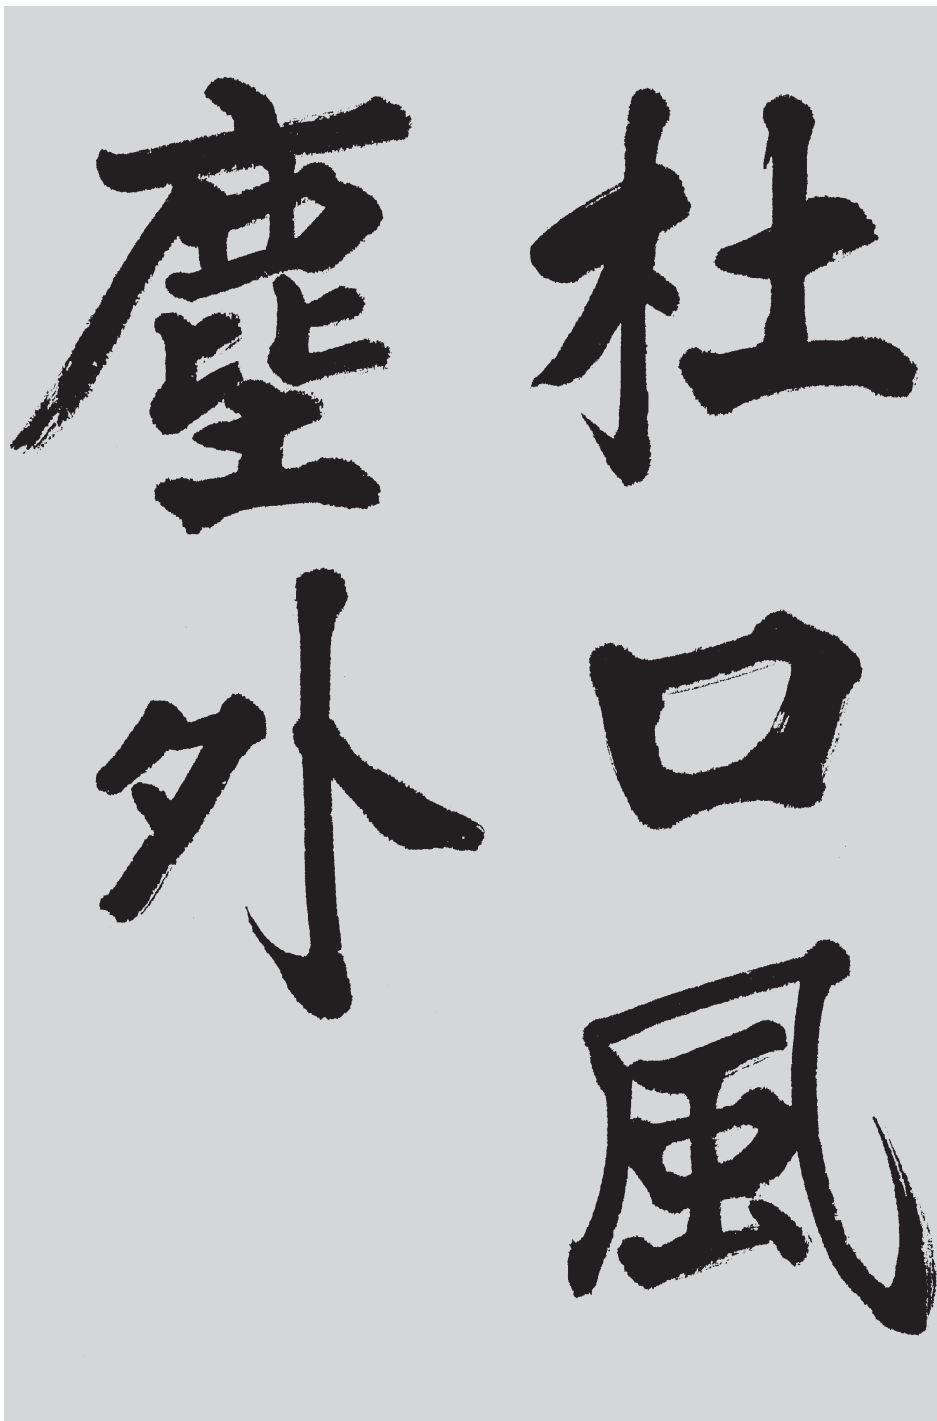 杜口風
塵外